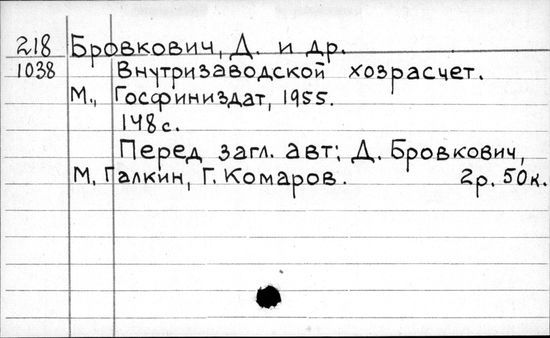 218 Бровкович, Д. и др.
1038 Внутризаводской хозрасчет.
М., Госфиниздат, 1955.
148с.
Перед загл. авт: Д. Бровкович,
М. Галкин, Г. Комаров. 2р. 50к.